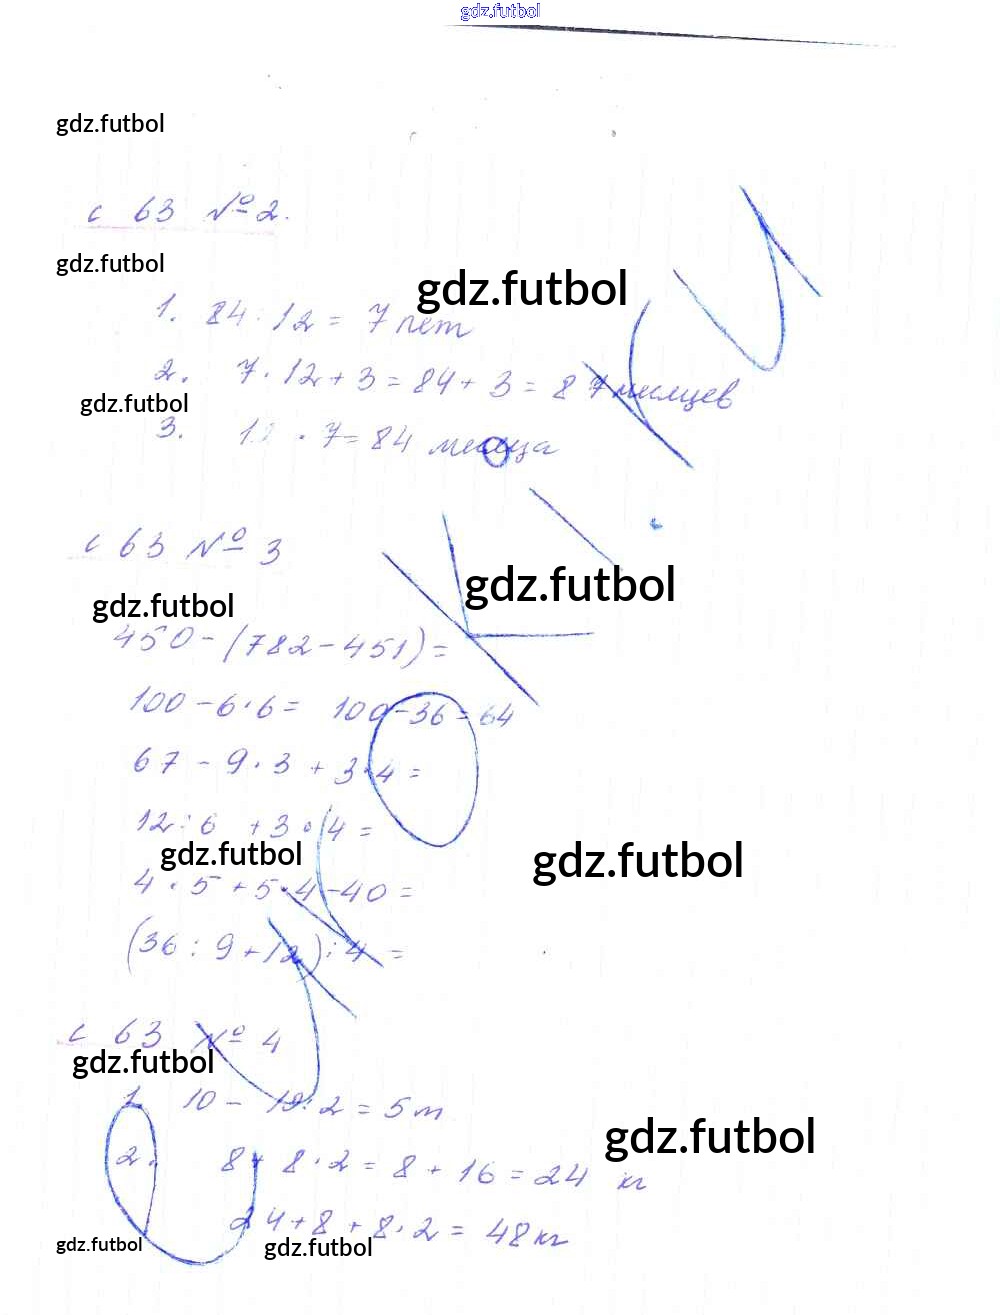 gdz.futbol
gdz.futbol
с 63 № 2.
gdz.futbol
gdz.futbol
1. 84 : 12 = 7 лет
2. 7 · 12 + 3 = 84 + 3 = 87 месяцев
gdz.futbol
3. 12 · 7 = 84 месяца
с 63 № 3
gdz.futbol
gdz.futbol
450 - (782 - 451) =
100 - 6 · 6 = 100 - 36 = 64
67 - 9 · 3 + 3 · 4 =
12 : 6 + 3 · 4 =
gdz.futbol
gdz.futbol
4 · 5 + 5 · 4 - 40 =
(36 : 9 + 12) : 4 =
с 63 № 4
gdz.futbol
1. 10 - 10 : 2 = 5 т
gdz.futbol
2. 8 + 8 · 2 = 8 + 16 = 24 кг
24 + 8 + 8 · 2 = 48 кг
gdz.futbol
gdz.futbol